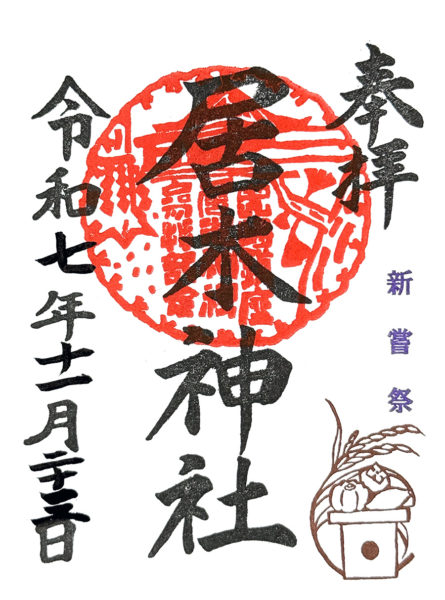 奉拝
新嘗祭
居木神社
令和七年十一月二十三日